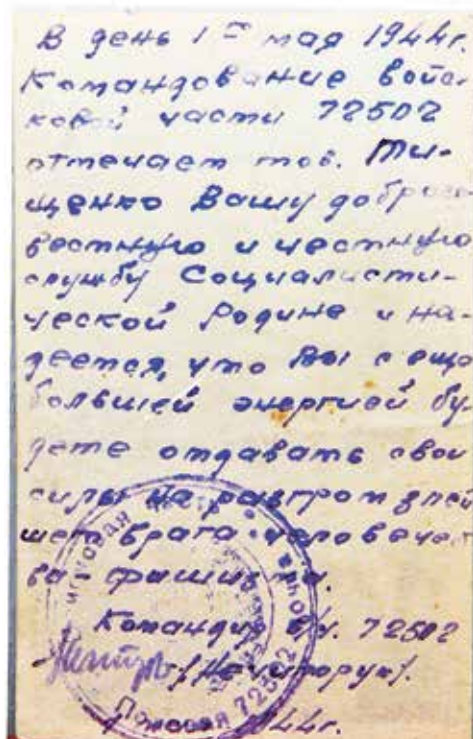 В день 1= мая 1944г.
Командование войс-
ковой части 72502
отмечает тов. Ти-
щенко Вашу добросо
вестную и честную
службу Социалисти-
ческой Родине и на-
деется, что Вы с еще
большей энергией бу
дете отдавать свои
силы на разгром злей
шег врага человечест
ва - фашизма.
Командир в/ч. 72502
Полевая 72502
1944г.